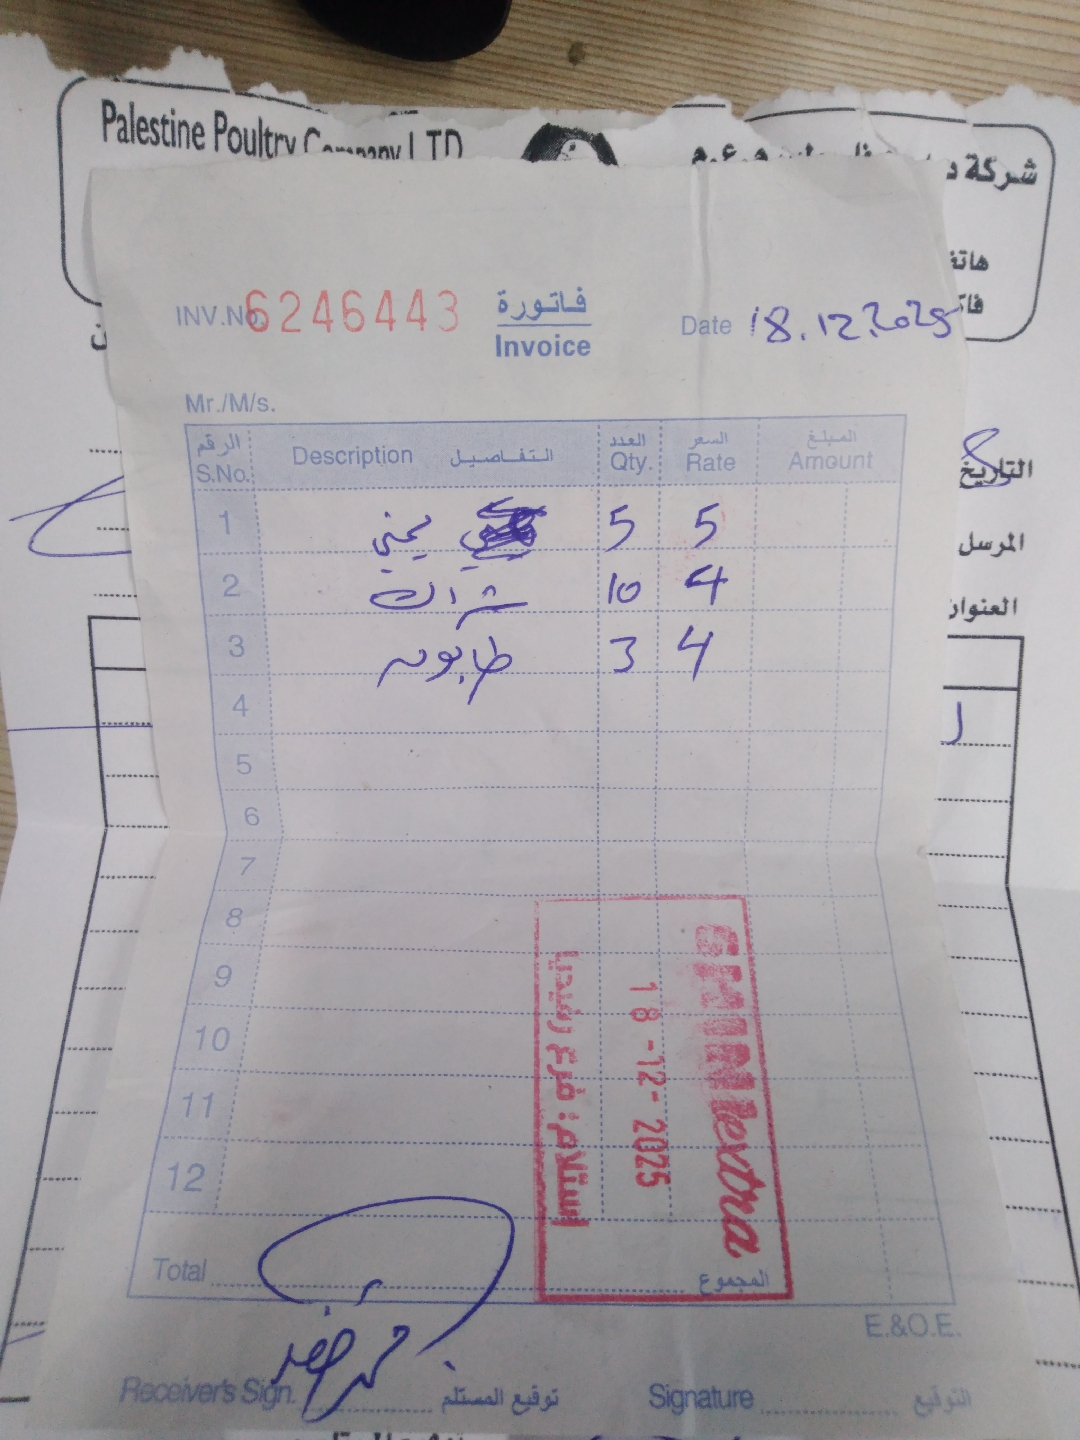 Palestine Poultry Company LTD
شركة
م.ع.م
هاتف
INV.No. 6246443
فاتورة
Invoice
Date 18.12.2025
Mr./M/s.
التاريخ
المرسل
العنوان
الرقم S.No. Description التفاصيل العدد Qty. السعر Rate المبلغ Amount
1 يمني 5 5
2 شراك 10 4
3 طابون 3 4
4
5
6
7
8
9
10
11
12
extra
18-12-2025
استلام: فرع رفيديا
Total المجموع
E.&O.E.
Receiver's Sign. توقيع المستلم Signature التوقيع